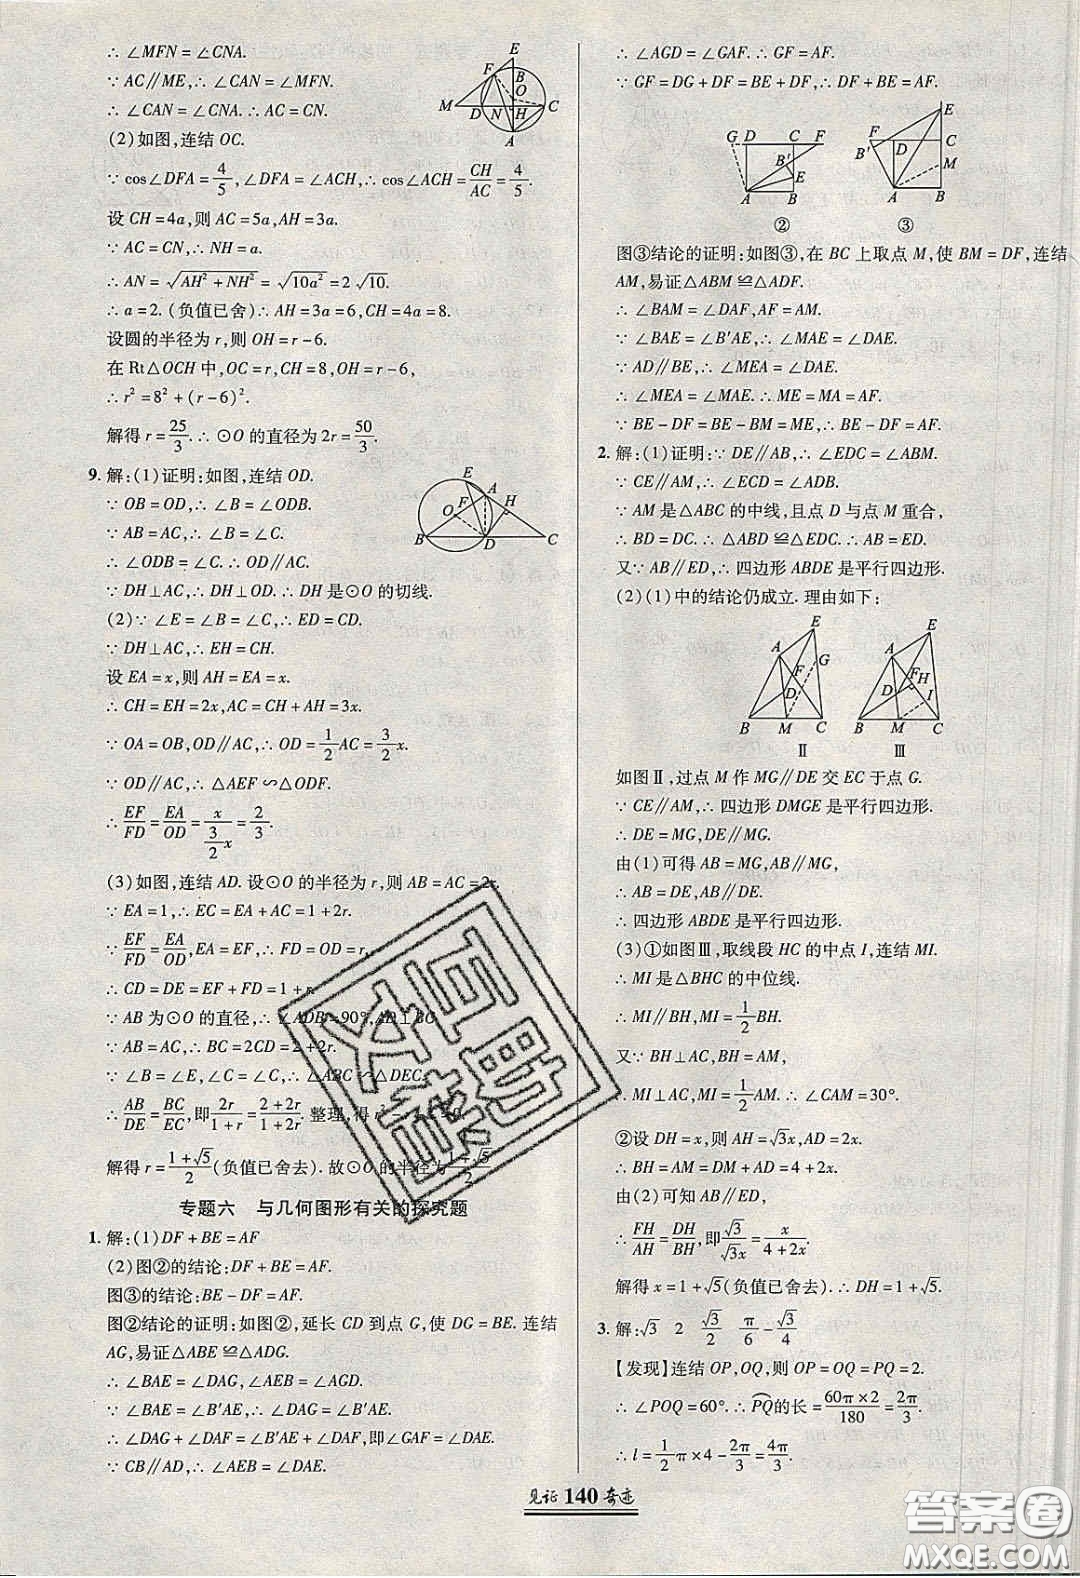 ∴ ∠MFN = ∠CNA.
∵ AC∥ME,∴ ∠CAN = ∠MFN.
∴ ∠CAN = ∠CNA. ∴ AC = CN.
(2)如图,连结 OC.
∵ cos∠DFA = 4/5,∠DFA = ∠ACH,∴ cos∠ACH = CH/AC = 4/5.
设 CH = 4a,则 AC = 5a,AH = 3a.
∵ AC = CN,∴ NH = a.
∴ AN = √(AH² + NH²) = √(10a²) = 2√10.
∴ a = 2. (负值已舍)∴ AH = 3a = 6,CH = 4a = 8.
设圆的半径为 r,则 OH = r - 6.
在 Rt△OCH 中,OC = r,CH = 8,OH = r - 6,
∴ r² = 8² + (r - 6)².
解得 r = 25/3. ∴ ⊙O 的直径为 2r = 50/3.
E F B O M D N H C A
9. 解:(1)证明:如图,连结 OD.
∵ OB = OD,∴ ∠B = ∠ODB.
∵ AB = AC,∴ ∠B = ∠C.
∴ ∠ODB = ∠C. ∴ OD∥AC.
∵ DH⊥AC,∴ DH⊥OD. ∴ DH 是⊙O 的切线.
(2)∵ ∠E = ∠B = ∠C,∴ ED = CD.
∵ DH⊥AC,∴ EH = CH.
设 EA = x,则 AH = EA = x.
∴ CH = EH = 2x,AC = CH + AH = 3x.
∵ OA = OB,OD∥AC,∴ OD = 1/2 AC = 3/2 x.
∵ OD∥AC,∴ △AEF∽△ODF.
∴ EF/FD = EA/OD = x/(3/2 x) = 2/3.
(3)如图,连结 AD. 设⊙O 的半径为 r,则 AB = AC = 2r.
∵ EA = 1,∴ EC = EA + AC = 1 + 2r.
∵ EF/FD = EA/OD,EA = EF,∴ FD = OD = r.
∴ CD = DE = EF + FD = 1 + r.
∵ AB 为⊙O 的直径,∴ ∠ADB = 90°,AD⊥BC.
∵ AB = AC,∴ BC = 2CD = 2 + 2r.
∵ ∠B = ∠E,∠C = ∠C,∴ △ABC∽△DEC.
∴ AB/DE = BC/EC,即 2r/(1 + r) = (2 + 2r)/(1 + 2r). 整理,得
解得 r = (1 + √5)/2 (负值已舍去). 故⊙O 的半径为 (1 + √5)/2
E A F H O B D C
专题六 与几何图形有关的探究题
1. 解:(1)DF + BE = AF
(2)图②的结论:DF + BE = AF.
图③的结论:BE - DF = AF.
图②结论的证明:如图②,延长 CD 到点 G,使 DG = BE. 连结
AG,易证△ABE≌△ADG.
∴ ∠BAE = ∠DAG,∠AEB = ∠AGD.
∵ ∠BAE = ∠B′AE,∴ ∠DAG = ∠B′AE.
∴ ∠DAG + ∠DAF = ∠B′AE + ∠DAF,即∠GAF = ∠DAE.
∵ CB∥AD,∴ ∠AEB = ∠DAE.
∴ ∠AGD = ∠GAF. ∴ GF = AF.
∵ GF = DG + DF = BE + DF,∴ DF + BE = AF.
G D C F B′ E A B
②
E F D C B′ M A B
③
图③结论的证明:如图③,在 BC 上取点 M,使 BM = DF,连结
AM,易证△ABM≌△ADF.
∴ ∠BAM = ∠DAF,AF = AM.
∵ ∠BAE = ∠B′AE,∴ ∠MAE = ∠DAE.
∵ AD∥BE,∴ ∠MEA = ∠DAE.
∴ ∠MEA = ∠MAE. ∴ ME = MA = AF.
∵ BE - DF = BE - BM = ME,∴ BE - DF = AF.
2. 解:(1)证明:∵ DE∥AB,∴ ∠EDC = ∠ABM.
∵ CE∥AM,∴ ∠ECD = ∠ADB.
∵ AM 是△ABC 的中线,且点 D 与点 M 重合,
∴ BD = DC. ∴ △ABD≌△EDC. ∴ AB = ED.
又∵ AB∥ED,∴ 四边形 ABDE 是平行四边形.
(2)(1)中的结论仍成立. 理由如下:
E A F G D B M C
Ⅱ
E A F H D I B M C
Ⅲ
如图Ⅱ,过点 M 作 MG∥DE 交 EC 于点 G.
∵ CE∥AM,∴ 四边形 DMGE 是平行四边形.
∴ DE = MG,DE∥MG.
由(1)可得 AB = MG,AB∥MG,
∴ AB = DE,AB∥DE.
∴ 四边形 ABDE 是平行四边形.
(3)①如图Ⅲ,取线段 HC 的中点 I,连结 MI.
∴ MI 是△BHC 的中位线.
∴ MI∥BH,MI = 1/2 BH.
又∵ BH⊥AC,BH = AM,
∴ MI⊥AC,MI = 1/2 AM. ∴ ∠CAM = 30°.
②设 DH = x,则 AH = √3x,AD = 2x.
∴ BH = AM = DM + AD = 4 + 2x.
由(2)可知,四边形 ABDE 是平行四边形,∴ DF∥AB.
∴ FH/AH = DH/BH,即 √3/(√3x) = x/(4 + 2x).
解得 x = 1 + √5(负值已舍去). ∴ DH = 1 + √5.
3. 解:√3 2 √3/2 π/6 - √3/4
【发现】连结 OP,OQ,则 OP = OQ = PQ = 2.
∴ ∠POQ = 60°. ∴ PQ⌒的长 = (60π × 2)/180 = 2π/3.
∴ l = 1/2 π × 4 - 2π/3 = 4π/3.
见证 140 奇迹
答案圈
MXQE.COM